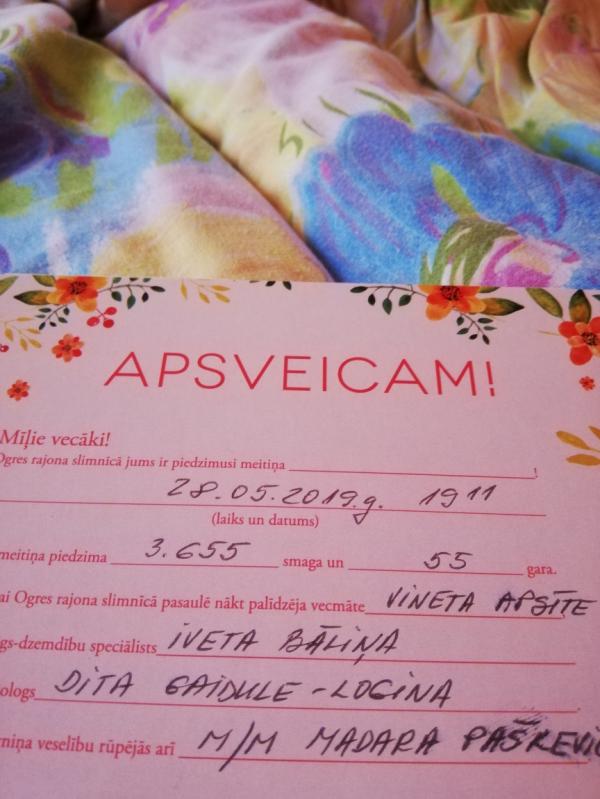 APSVEICAM!
Mīļie vecāki!
Ogres rajona slimnīcā jums ir piedzimusi meitiņa !
28.05.2019.g. 19 11
(laiks un datums)
meitiņa piedzima 3.655 smaga un 55 gara.
ai Ogres rajona slimnīcā pasaulē nākt palīdzēja vecmāte VINETA APSĪTE
gs-dzemdību speciālists IVETA BĀLIŅA
ologs DITA GAIDULE-LOGINA
rniņa veselību rūpējās arī M/M MADARA PAŠKEVIC